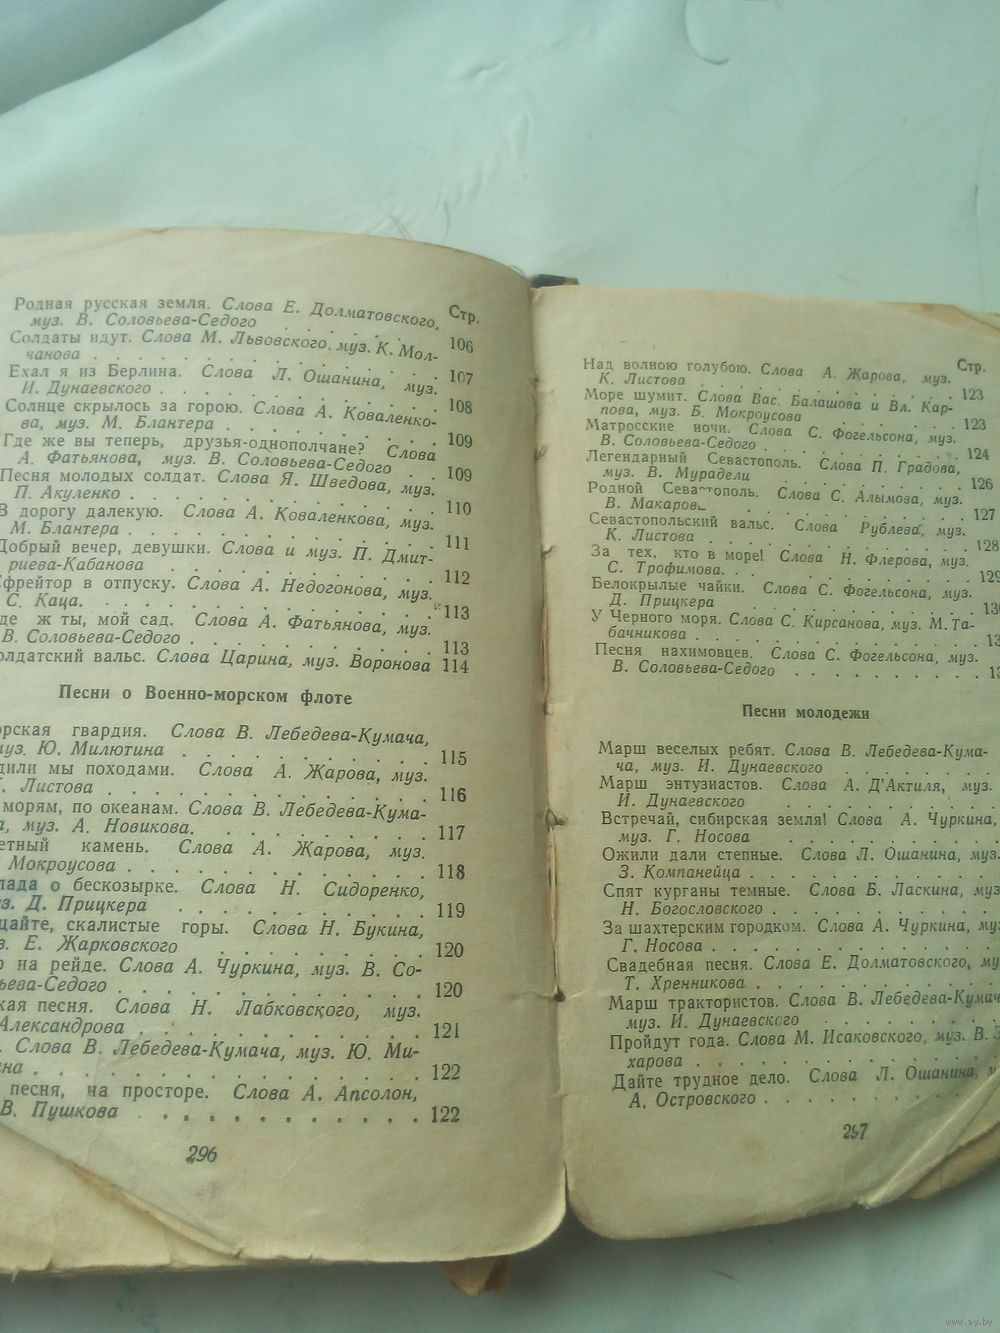 Стр.
Родная русская земля. Слова Е. Долматовского,
муз. В. Соловьева-Седого . . . . 106
Солдаты идут. Слова М. Львовского, муз. К. Мол-
чанова . . . . 107
Ехал я из Берлина. Слова Л. Ошанина, муз.
И. Дунаевского . . . . 108
Солнце скрылось за горою. Слова А. Коваленко-
ва, муз. М. Блантера . . . . 109
Где же вы теперь, друзья-однополчане? Слова
А. Фатьянова, муз. В. Соловьева-Седого . . 109
Песня молодых солдат. Слова Я. Шведова, муз.
П. Акуленко . . . . 110
В дорогу далекую. Слова А. Коваленкова, муз.
М. Блантера . . . . 111
Добрый вечер, девушки. Слова и муз. П. Дмит-
риева-Кабанова . . . . 112
фрейтор в отпуску. Слова А. Недогонова, муз.
С. Каца. . . . . 113
де ж ты, мой сад. Слова А. Фатьянова, муз.
В. Соловьева-Седого . . . . 113
олдатский вальс. Слова Царина, муз. Воронова 114
Песни о Военно-морском флоте
орская гвардия. Слова В. Лебедева-Кумача,
муз. Ю. Милютина . . . . 115
дили мы походами. Слова А. Жарова, муз.
Листова . . . . 116
морям, по океанам. Слова В. Лебедева-Кума-
а, муз. А. Новикова. . . . . 117
етный камень. Слова А. Жарова, муз.
Мокроусова . . . . 118
лада о бескозырке. Слова Н. Сидоренко,
уз. Д. Прицкера . . . . 119
щайте, скалистые горы. Слова Н. Букина,
з. Е. Жарковского . . . . 120
р на рейде. Слова А. Чуркина, муз. В. Со-
ьева-Седого . . . . 120
кая песня. Слова Н. Лабковского, муз.
Александрова . . . . 121
. Слова В. Лебедева-Кумача, муз. Ю. Ми-
на . . . . 122
песня, на просторе. Слова А. Апсолон,
В. Пушкова . . . . 122
296
Стр.
Над волною голубою. Слова А. Жарова, муз.
К. Листова . . . . 123
Море шумит. Слова Вас. Балашова и Вл. Кар-
пова, муз. Б. Мокроусова . . . . 123
Матросские ночи. Слова С. Фогельсона, муз.
В. Соловьева-Седого . . . . 124
Легендарный Севастополь. Слова П. Градова,
муз. В. Мурадели . . . . 126
Родной Севастополь. Слова С. Алымова, муз.
В. Макарова . . . . 127
Севастопольский вальс. Слова Рублева, муз.
К. Листова . . . . 128
За тех, кто в море! Слова Н. Флерова, муз.
С. Трофимова. . . . . 129
Белокрылые чайки. Слова С. Фогельсона, муз.
Д. Прицкера . . . . 13
У Черного моря. Слова С. Кирсанова, муз. М. Та-
бачникова . . . . 13
Песня нахимовцев. Слова С. Фогельсона, муз.
В. Соловьева-Седого . . . . 1
Песни молодежи
Марш веселых ребят. Слова В. Лебедева-Кума-
ча, муз. И. Дунаевского . . . .
Марш энтузиастов. Слова А. Д'Актиля, муз.
И. Дунаевского . . . .
Встречай, сибирская земля! Слова А. Чуркина,
муз. Г. Носова . . . .
Ожили дали степные. Слова Л. Ошанина, муз.
З. Компанейца . . . .
Спят курганы темные. Слова Б. Ласкина, муз
Н. Богословского . . . .
За шахтерским городком. Слова А. Чуркина, муз
Г. Носова . . . .
Свадебная песня. Слова Е. Долматовского, му
Т. Хренникова . . . .
Марш трактористов. Слова В. Лебедева-Кумач
муз. И. Дунаевского . . . .
Пройдут года. Слова М. Исаковского, муз. В. З
харова . . . .
Дайте трудное дело. Слова Л. Ошанина, м
А. Островского . . . .
297
www.ay.by